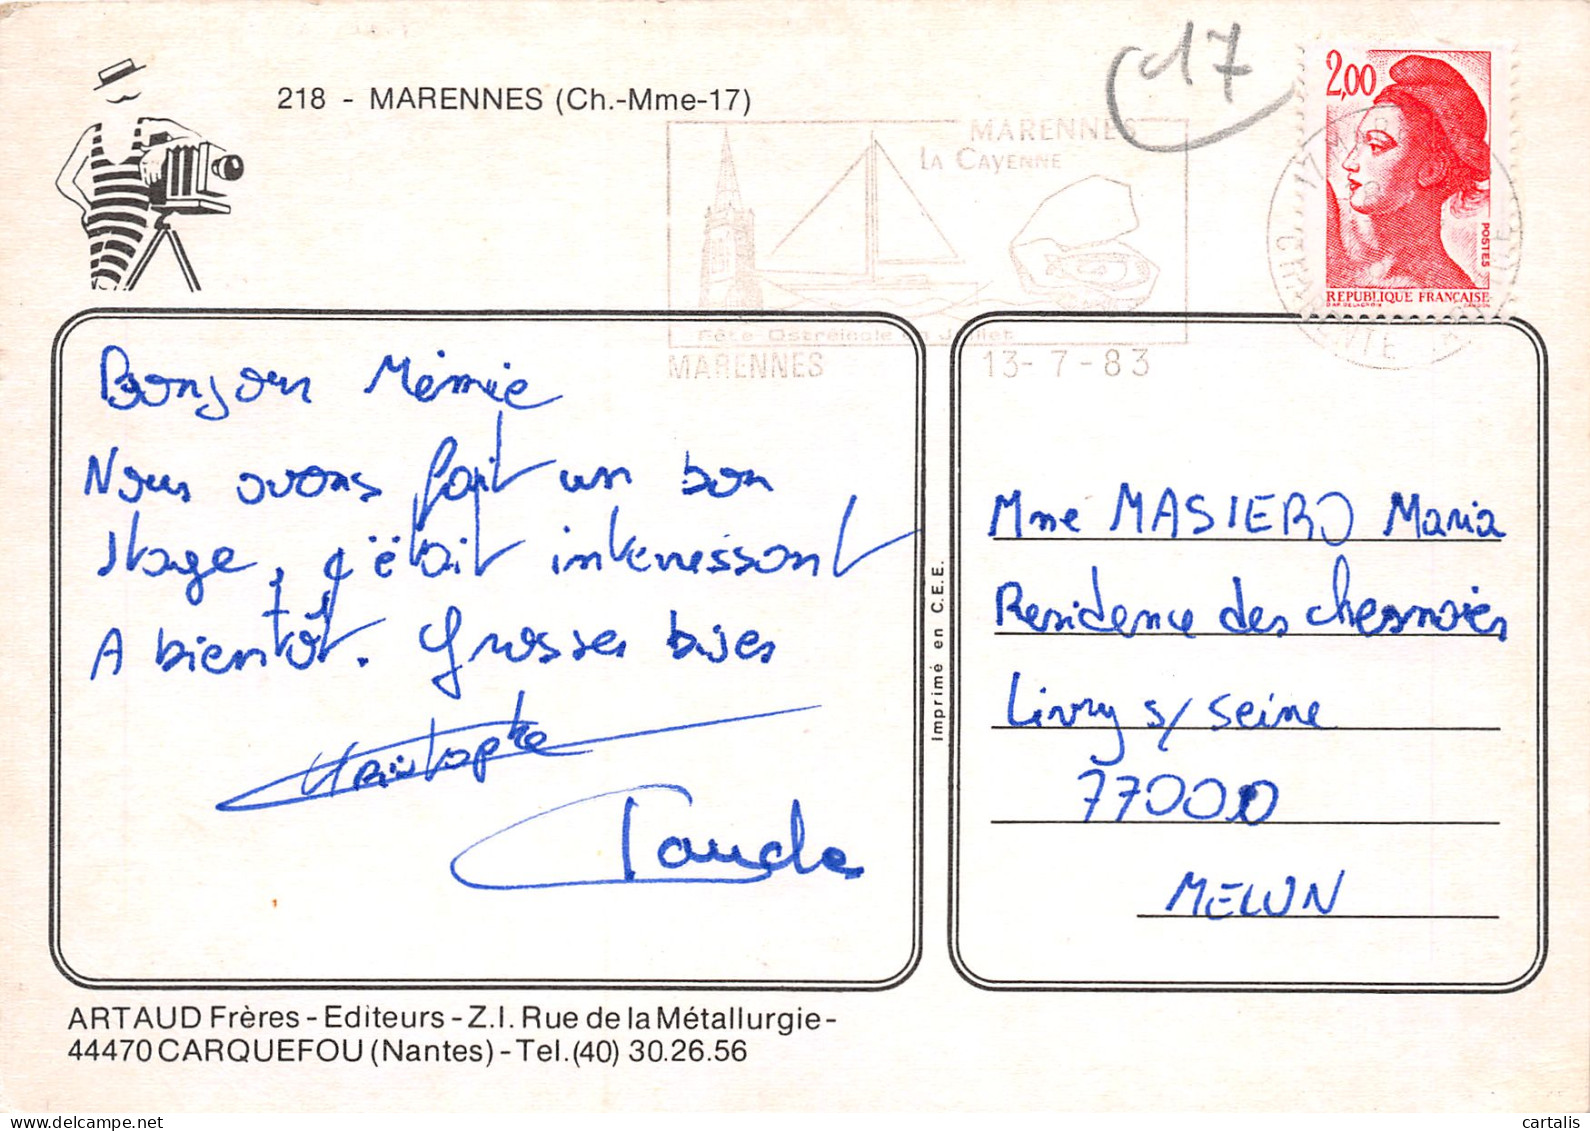 d17
218 - MARENNES (Ch.-Mme-17)
MARENNES
LA CAYENNE
Fête Ostréicole en Juillet
MARENNES 13-7-83
2,00
POSTES
REPUBLIQUE FRANÇAISE
Bonjour Mémie
Nous avons fait un bon
stage, ç'était intéressant
A bientôt. Grosses bises
Christophe
Imprimé en C.E.E.
Mme MASIERO Maria
Residence des chesnaies
Livry s/ seine
77000
MELUN
ARTAUD Frères - Editeurs - Z.I. Rue de la Métallurgie -
44470 CARQUEFOU (Nantes) - Tel. (40) 30.26.56
cartalis
www.delcampe.net